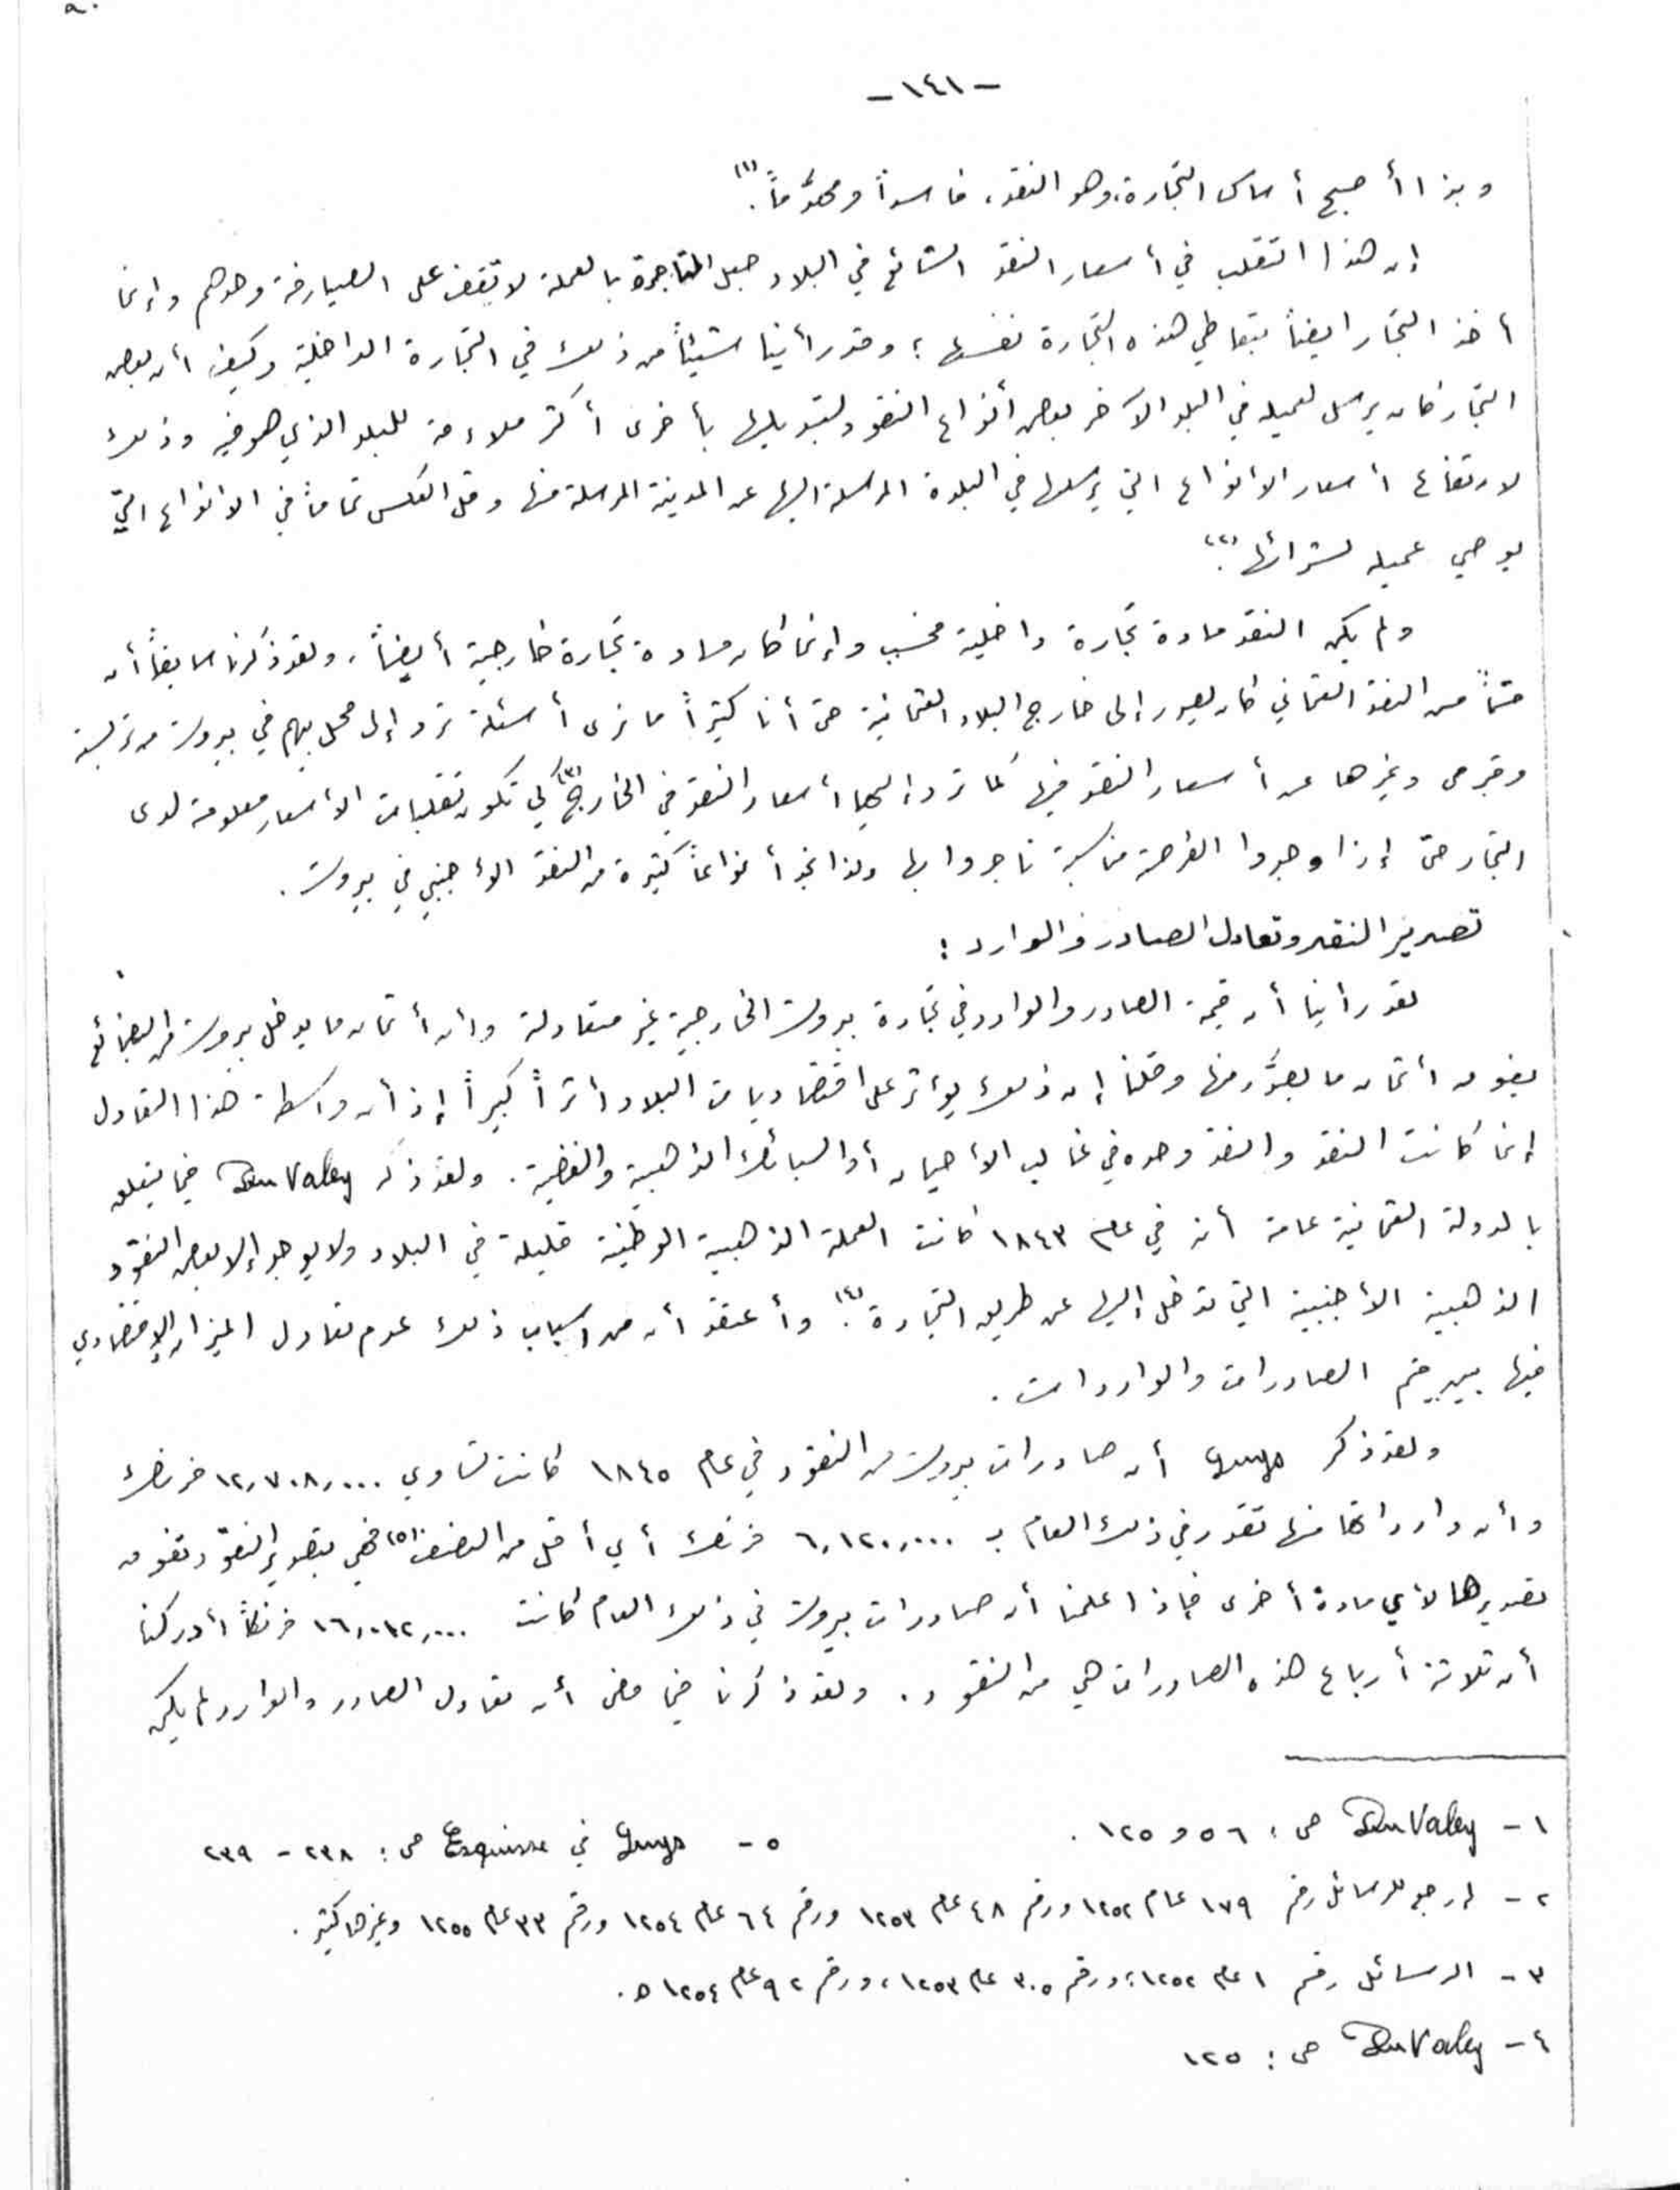 - ١٤١ -
وبذا أصبح أساس التجارة، وهو النقد، فاسداً ومحدَّماً.(١)
إن هذا التقلب في أسعار النقد الشائع في البلاد جعل المتاجرة بالعملة لا تقف على الصيارفة وحدهم وإنما
أخذ التجار ايضاً بتعاطي هذه التجارة نفسها؛ وقد رأينا شيئاً من ذلك في التجارة الداخلية وكيف أن بعض
التجار كان يرسل لعميله في البلد الآخر بعض أنواع النقود لتبديلها بأخرى أكثر ملاءمة للبلد الذي هو فيه وذلك
لارتفاع أسعار الأنواع التي يرسلها في البلدة المرسلة اليها عن المدينة المرسلة منها وقل العكس تماماً في الأنواع التي
يوصي عميله لشرائها.(٢)
ولم يكن النقد مادة تجارة داخلية فحسب وإنما كان مادة تجارة خارجية أيضاً. ولقد ذكرنا سابقاً أن
قسماً من النقد العثماني كان يصدر إلى خارج البلاد العثمانية حتى أنا كثيراً ما نرى أسئلة ترد إلى محل بيهم في بيروت من تريسته
وقبرص وغيرها عن أسعار النقد فيها كما ترد إليها أسعار النقد في الخارج(٣) كي تكون تقلبات الأسعار معلومة لدى
التجار حتى إذا وجدوا الفرصة مناسبة تاجروا بها ولذا نجد أنواعاً كثيرة من النقد الأجنبي في بيروت.
تصدير النقد وتعادل الصادر والوارد :
لقد رأينا أن قيمة الصادر والوارد في تجارة بيروت الخارجية غير متعادلة وأن أثمان ما يدخل بيروت من البضائع
يفوق أثمان ما يصدَّر منها وقلنا إن ذلك يؤثر على اقتصاديات البلاد أثراً كبيراً إذ أن واسطة هذا التعادل
إنما كانت النقد والنقد وحده في غالب الأحيان أو السبائك الذهبية والفضية. ولقد ذكر Du Valey فيما يتعلق
بالدولة العثمانية عامة أنه في عام ١٨٤٣ كانت العملة الذهبية الوطنية قليلة في البلاد ولا يوجد إلا بعض النقود
الذهبية الأجنبية التي تدخل إليها عن طريق التجارة(٤). وأعتقد أن من اسباب ذلك عدم تعادل الميزان الاقتصادي
فيها بين قيم الصادرات والواردات.
ولقد ذكر Guys أن صادرات بيروت من النقود في عام ١٨٤٥ كانت تساوي ١٢,٧٠٨,٠٠٠ فرنك
وأن وارداتها منها تقدر في ذلك العام بـ ٦,١٢٠,٠٠٠ فرنك أي أقل من النصف(٥) فهي بتصدير النقود تفوق
تصديرها لأي مادة أخرى فإذا علمنا أن صادرات بيروت في ذلك العام كانت ١٦,٠١٢,٠٠٠ فرنكاً أدركنا
أن ثلاثة أرباع هذه الصادرات هي من النقود. ولقد ذكرنا فيما مضى أن تعادل الصادر والوارد لم يكن
١ - Du Valey ص : ٥٦ و ١٢٥ .
٥ - Guys في Esquisse ص : ٢٣٨ - ٢٣٩
٢ - ارجع للرسائل رقم ١٧٩ عام ١٢٥٢ ورقم ٤٨ عام ١٢٥٣ ورقم ٦٤ عام ١٢٥٤ ورقم ٣٣ عام ١٢٥٥ وغيرها كثير .
٣ - الرسائل رقم ١ عام ١٢٥٢، ورقم ٣٠٥ عام ١٢٥٣، ورقم ٩٢ عام ١٢٥٤ هـ.
٤ - Du Valey ص : ١٢٥